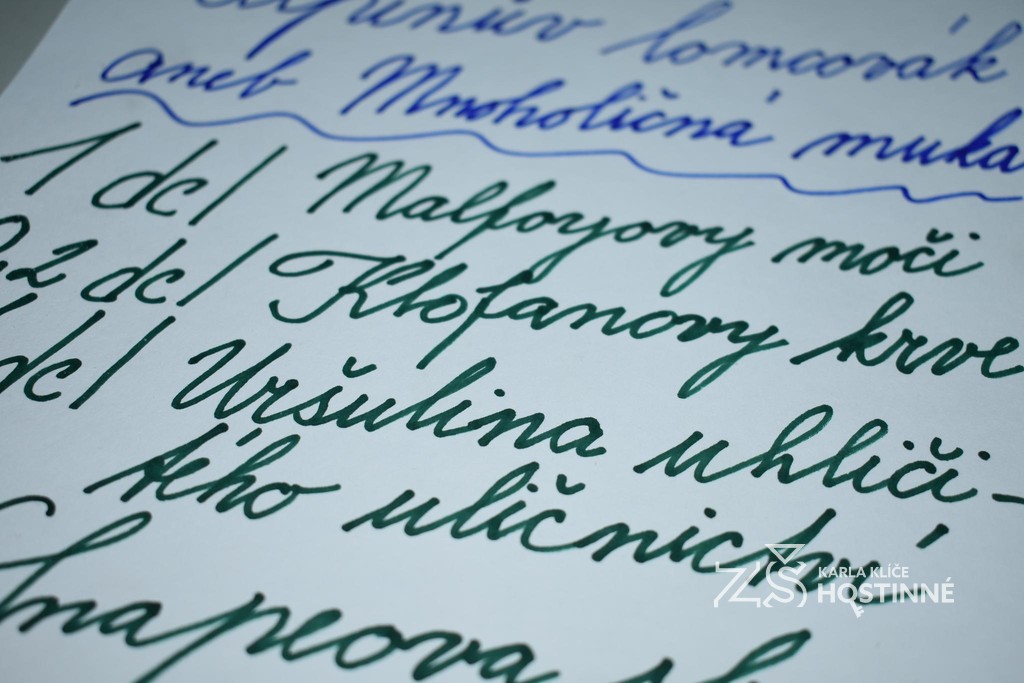 lomcovák
aneb Mnoholičná muka
1 dcl Malfoyovy moči
2 dcl Klofanovy krve
dcl Uršulina uhliči-
tého uličnictví
Snapeova
ZŠ KARLA KLÍČE
HOSTINNÉ